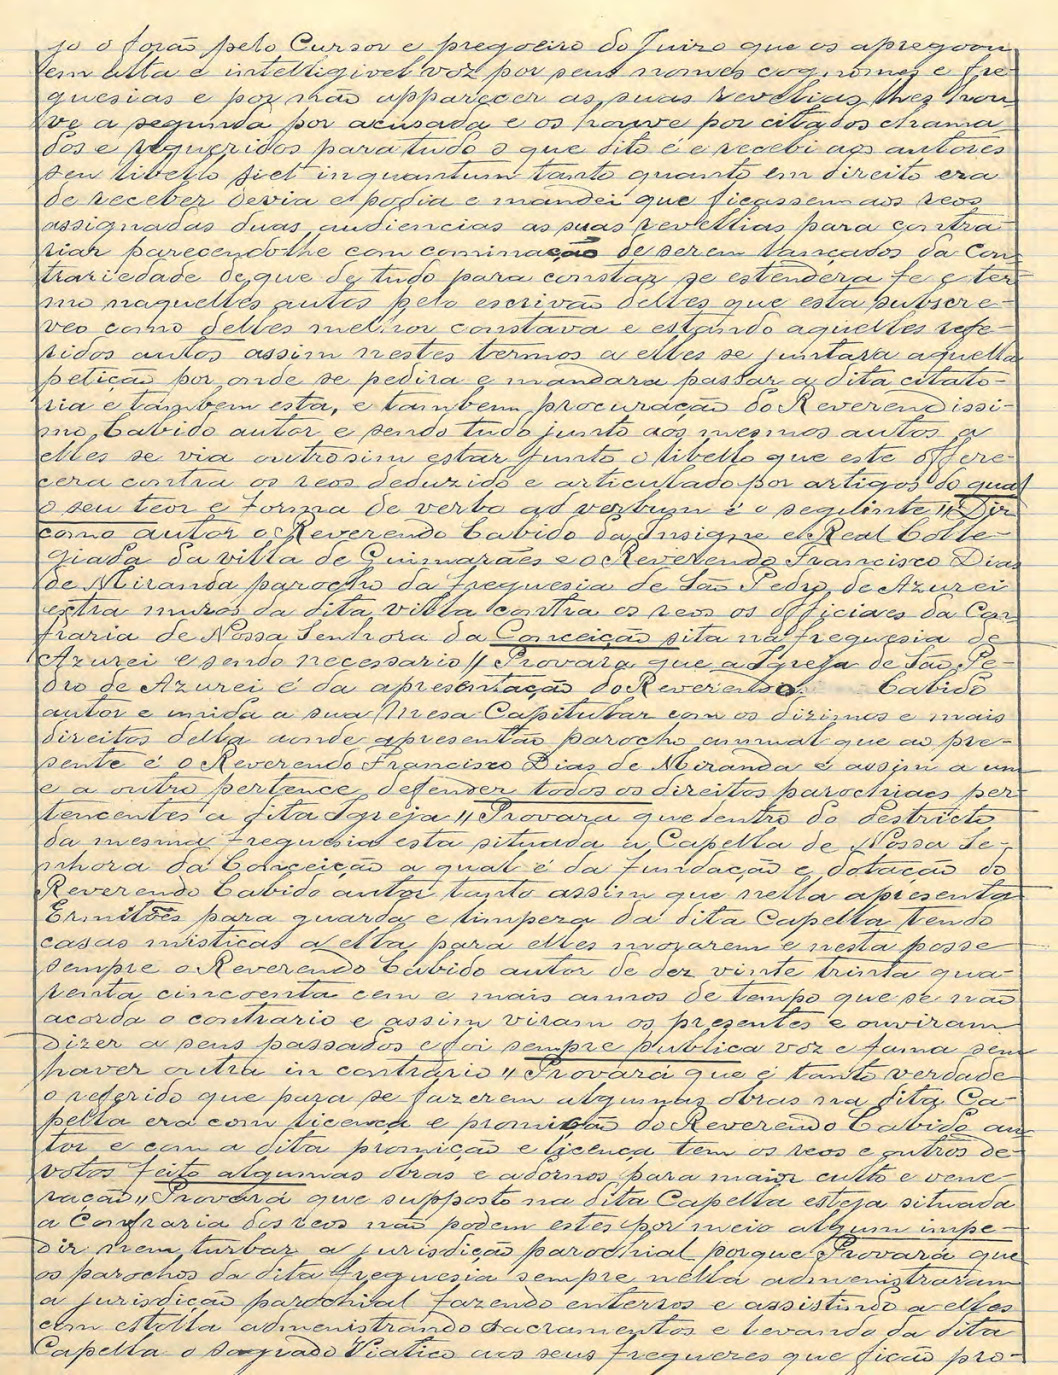 jo o forão pelo Cursor e pregoeiro do Juizo que os apregoou
em alta e intelligivel voz por seus nomes cognomes e fre-
guesias e por não apparecer as suas revelias lhez hou-
ve a segunda por acusada e os houve por citados chama
dos e requeridos para tudo o que dito é e recebi aos autores
seu libello siet inquantum tanto quanto em direito era
de receber devia e podia e mandei que ficassem aos reos
assignadas duas audiencias as suas revellias para contra
riar parecendolhe com cominação de serem lançados da Con-
trariedade de que de tudo para constar se estendera fe e ter-
mo naquelles autos pelo escrivão delles que esta subscre-
veo como delles melhor constava e estando aquelles refe-
ridos autos assim nestes termos a elles se juntara aquella
petição por onde se pedira e mandara passar a dita citato-
ria e tambem esta, e tambem procuração do Reverendissi-
mo Cabido autor e sendo tudo junto aos mesmos autos a
elles se via outrosim estar junto o libello que este offere-
cera contra os reos deduzido e articulado por artigos do qual
o seu teor e forma de verbo ad verbum é o seguinte " Diz
como autor o Reverendo Cabido da Insigne e Real Colle-
giada da villa de Guimarães e o Reverendo Francisco Dias
de Miranda parocho da freguesia de São Pedro de Azurei
extra muros da dita villa contra os reos os officiaes da Con
fraria de Nossa Senhora da Conceição sita na freguesia de
Azurei e sendo necessario " Provará que a Igreja de São Pe-
dro de Azurei é da apresentação do Reverendo Cabido
autor e unida a sua Mesa Capitular com os dizimos e mais
direitos della aonde apresentão parocho annual que ao pre-
sente é o Reverendo Francisco Dias de Miranda e assim a um
e a outro pertence defender todos os direitos parochiaes per-
tencentes a dita Igreja " Provara que dentro do destricto
da mesma freguesia esta situada a Capella de Nossa Se-
nhora da Conceição a qual é da fundação e dotação do
Reverendo Cabido autor tanto assim que nella apresenta
Ermitões para guarda e limpeza da dita Capella tendo
casas misticas a ella para elles morarem e nesta posse
sempre o Reverendo Cabido autor de dez vinte trinta qua-
renta cincoenta cem e mais annos de tempo que se não
acorda o contrario e assim viram os presentes e ouviram
dizer a seus passados e foi sempre publica voz e fama sem
haver outra in contrario " Provará que é tanto verdade
o referido que para se fazerem algumas obras na dita Ca-
pella era com licença e promição do Reverendo Cabido au
tor e com a dita promição e licença tem os reos e outros de-
votos feito algumas obras e adornos para maior culto e vene-
ração " Provará que supposto na dita Capella esteja situada
a Confraria dos reos não podem estes por meio algum impe-
dir nem turbar a jurisdição parochial porque Provará que
os parochos da dita freguesia sempre nella admenistraram
a jurisdição parochial fazendo enterros e assistindo a elles
com estolla admenistrando sacramentos e levando da dita
Capella o Sagrado Viatico aos seus fregueres que ficão pro-